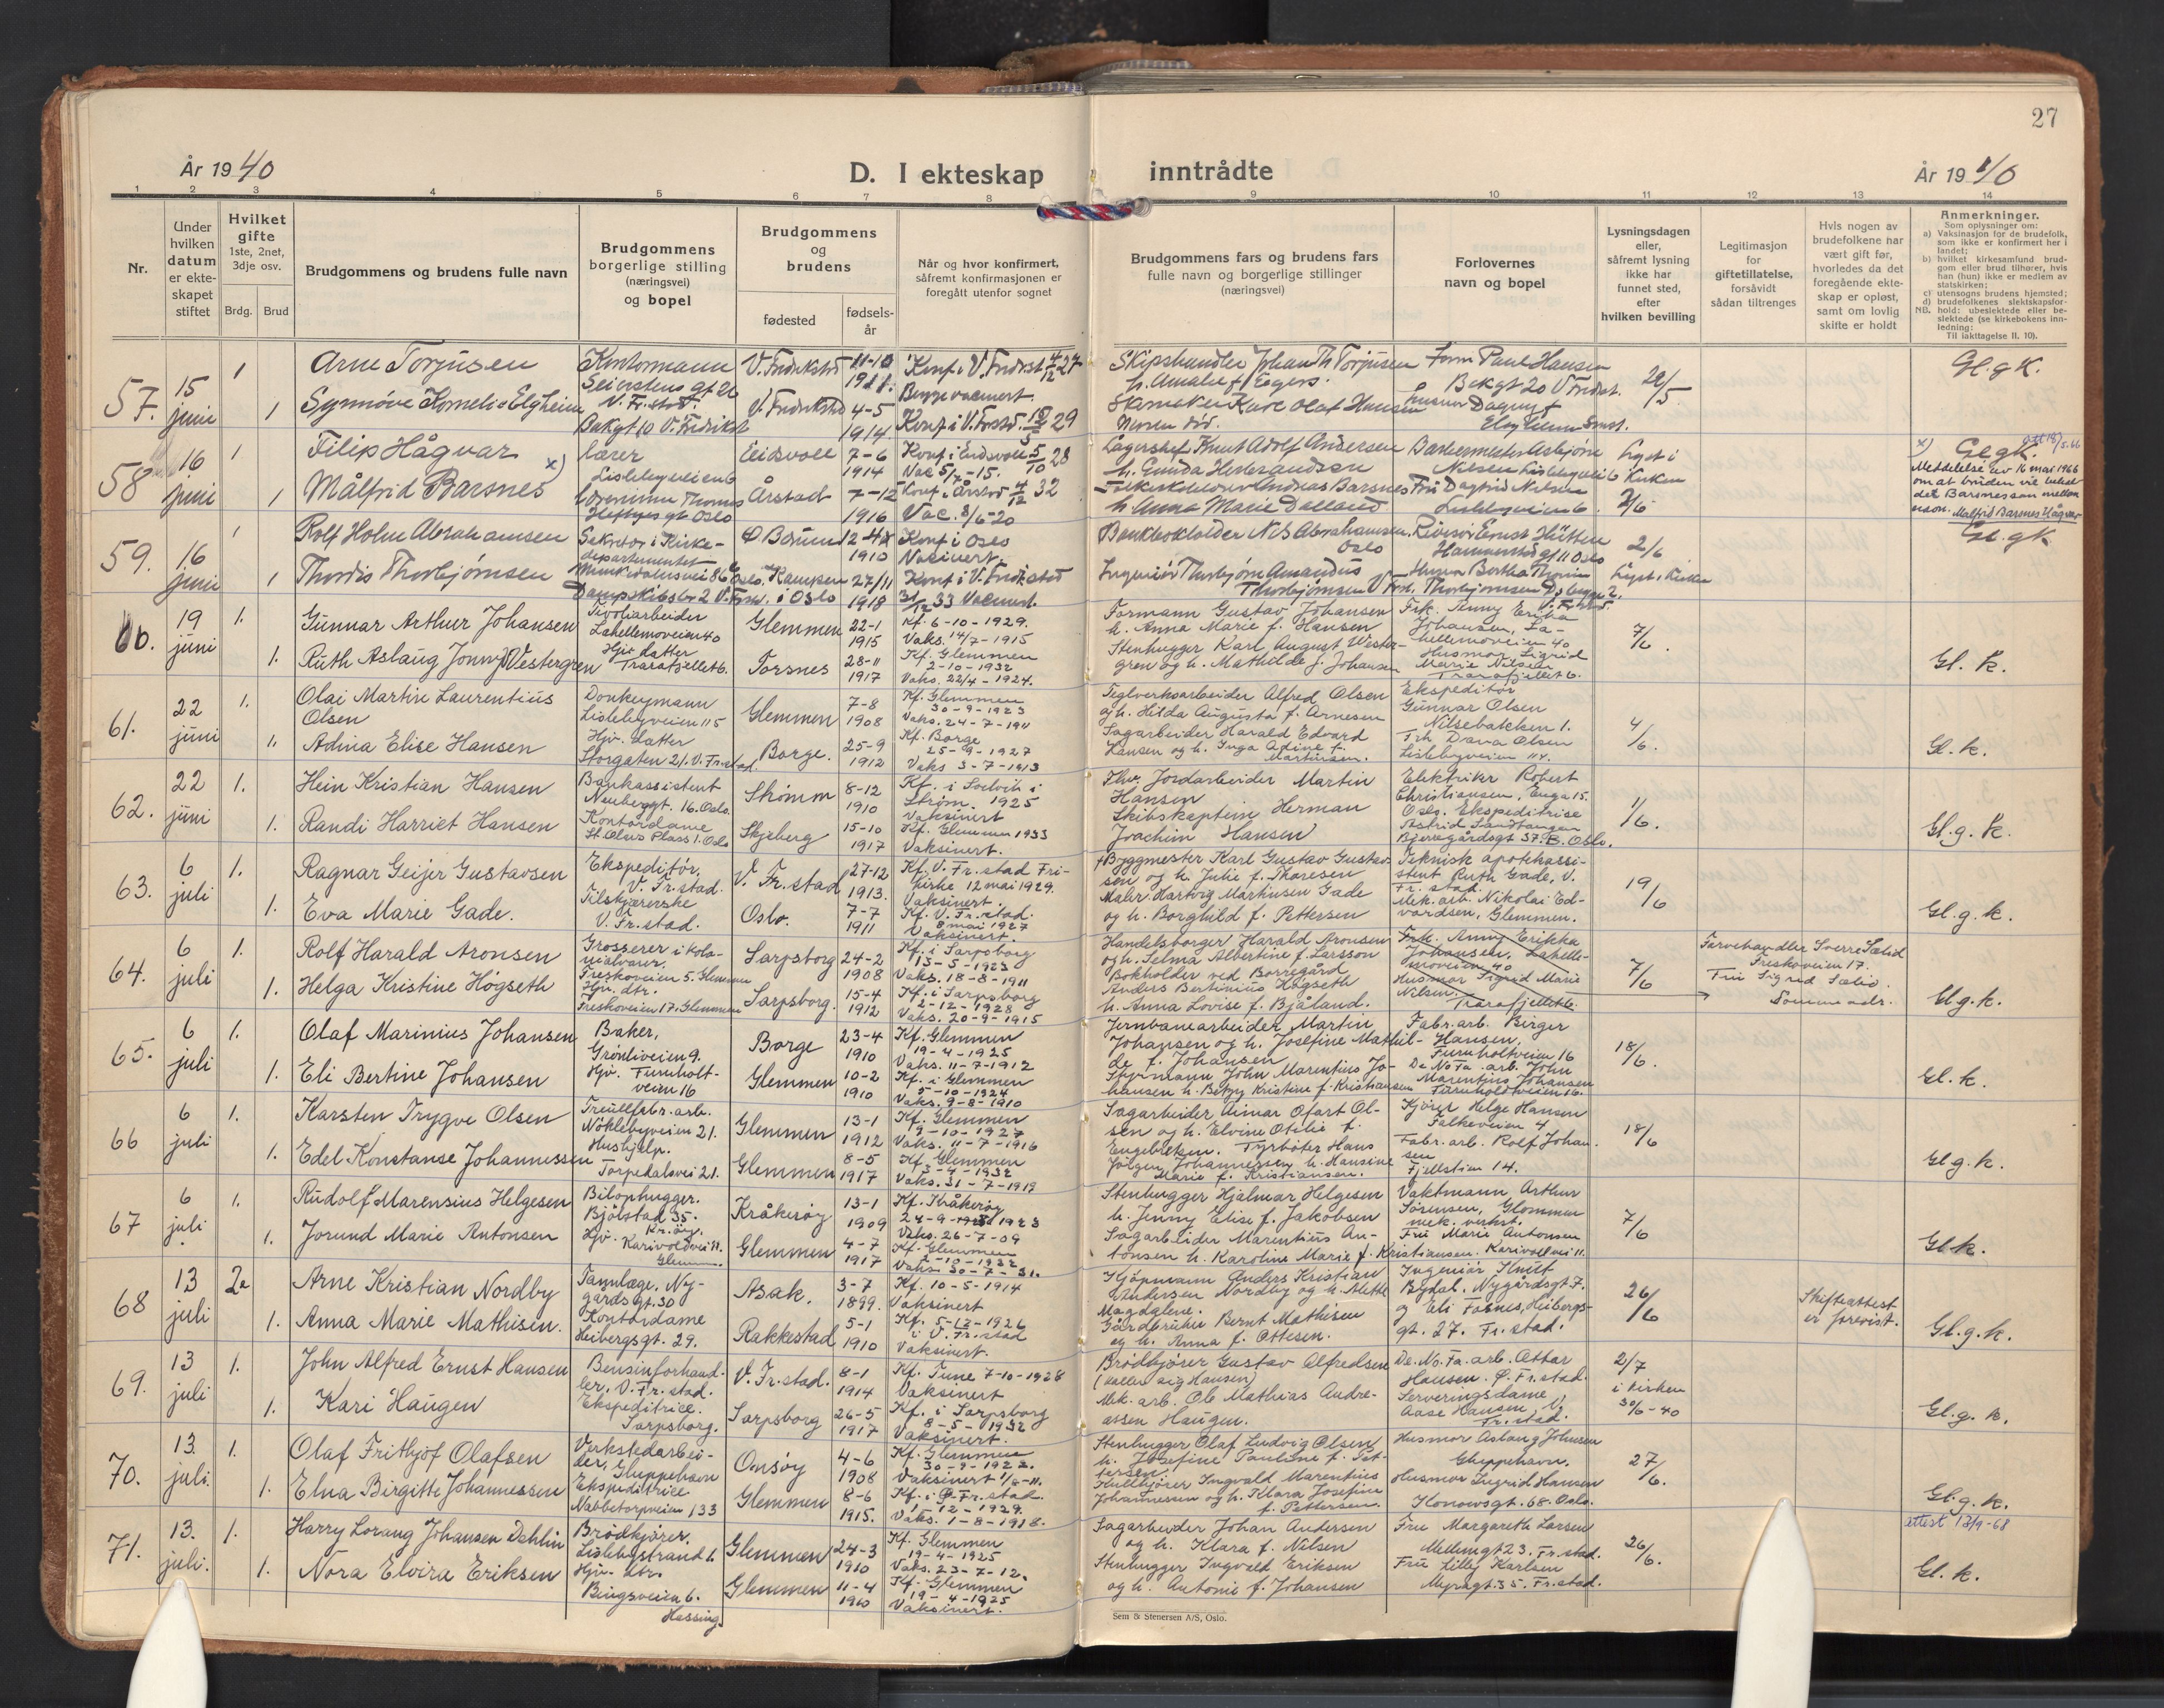 27
År 1940
D. I ekteskap
inntrådte
År 1940
1 2 3 4 5 6 7 8 9 10 11 12 13 14
Nr.
Under
hvilken
datum
er ekte-
skapet
stiftet
Hvilket
gifte
1ste, 2net,
3dje osv.
Brdg. Brud
Brudgommens og brudens fulle navn
Brudgommens
borgerlige stilling
(næringsvei)
og bopel
Brudgommens
og
brudens
fødested
fødsels-
år
Når og hvor konfirmert,
såfremt konfirmasjonen er
foregått utenfor sognet
Brudgommens fars og brudens fars
fulle navn og borgerlige stillinger
(næringsvei)
Forlovernes
navn og bopel
Lysningsdagen
eller,
såfremt lysning
ikke har
funnet sted,
efter
hvilken bevilling
Legitimasjon
for
giftetillatelse,
forsåvidt
sådan tiltrenges
Hvis nogen av
brudefolkene har
vært gift før,
hvorledes da det
foregående ekte-
skap er opløst,
samt om lovlig
skifte er holdt
Anmerkninger.
Som oplysninger om:
a) Vaksinasjon for de brudefolk,
som ikke er konfirmert her i
landet;
b) hvilket kirkesamfund brud-
gom eller brud tilhører, hvis
han (hun) ikke er medlem av
statskirken;
c) utensogns brudens hjemsted;
d) brudefolkenes slektskapsfor-
hold: ubeslektede eller be-
slektede (se kirkebokens inn-
ledning:
NB. Til iakttagelse II. 10).
57. 15 juni
1 Arne Torjusen
Kontormann
V. Fredrikstad 11-10 1911
1 Synnøve Kornelie Elgheim
V. Fredrikstad 4-5 1914
Skipshandler Johan Th Torjusen
Form Paul Hansen
Bakgt 20 V Fredrst.
22/5
Gl.g.K.
58 16 juni
1 Filip Hågvar
lærer
Lislebyveien 6
Eidsvoll 7-6 1914
Vac 5/7-15.
1 Målfrid Barsnes x)
Årstad 7-12 1916
Vac. 8/6-20
Lagerchef Knut Adolf Andersen
h. Anna Marie Dalland
Lislebyveien 6.
Lyst i
Kirken
2/6
x) Gl.gk.
Meddelelse av 16 mai 1966
om at bruden vil behol-
det Barsnes som mellom
navn. Målfrid Barsnes Hågvar
59. 16 juni
1 Rolf Holm Abrahamsen
Sekretær i Kirke-
departementet
Ø Bærum 12-4 1910
Konf i Oslo
Vacinert.
1 Thordis Thorbjørnsen
Kampen i Oslo 27/11 1918
Konf i V. Fredr.stad
Bankbokholder Nils Abrahamsen,
Oslo
Ingeniør Thorbjørn Amandus
Thorbjørnsen V Frst.
2/6
Lyst i Kirken
Gl.gk
60. 19 juni
1. Gunnar Arthur Johansen
Lahellemoveien 40
Glemmen 22-1 1915
Kf. 6-10-1929.
Vaks. 14/7-1915
1. Ruth Aslaug Jonny Vestergren
Hjv. datter
Trarafjellet 6.
Torsnes 28-11 1917
Kf. Glemmen
2-10-1932
Vaks. 22/4-1924.
Formann Gustav Johansen
h. Anna Marie f. Hansen
Stenhugger Karl August Wester-
gren og h. Mathilde f. Johansen
Frk. Anny Erikka
Johansen, La-
hellemoveien 40
Husmor Sigrid
Marie Nilsen
Trarafjellet 6.
7/6.
Gl. k.
61. 22 juni
1. Olai Martin Laurentius
Olsen
Donkeymann
Lislebyveien 115
Glemmen 7-8 1908
Kf. Glemmen
30-9-1923
Vaks. 24-7-1911
1. Adina Elise Hansen
Hjv. datter
Storgaten 21. V. Fr.stad
Borge. 25-9 1912
Kf. Borge
25-9-1927
Vaks 3-7-1913
Teglverksarbeider Alfred Olsen
og h. Hilda Augusta f. Arnesen
Sagarbeider Harald Edvard
Hansen og h. Inga Adine f.
Martinsen.
Ekspeditør
Gunnar Olsen
Nilsebakken 1.
Olsen
4/6.
Gl. k.
62. 22 juni
1. Hein Kristian Hansen
Bankassistent
Neuberggt. 16. Oslo.
Strømm 8-12 1910
Strøm. 1925
Vaksinert
1. Randi Harriet Hansen
Kontordame
St. Olavs Plass 1. Oslo
Skjeberg 15-10 1917
Kf. Glemmen 1933
Vaksinert.
Fhv. Jordarbeider Martin
Hansen
Skibskaptein Herman
Joachim Hansen
Elektriker Robert
Christiansen, Enga 15.
Oslo. Ekspeditrise
Astrid Sandtangen
Bjerregårdsgt 37. B. Oslo.
1/6.
Gl. g. k.
63. 6 juli
1. Ragnar Geijer Gustavsen
Ekspeditør,
V. Fr.stad.
V. Fr.stad 27-12 1913.
Kf. V. Fr.stad Fri-
kirke 12 mai 1929.
Vaksinert
1. Eva Marie Gade.
V. Fr.stad.
Oslo. 7-7 1911
Kf. V. Fr.stad.
8 mai 1927
Vaksinert.
Byggmester Karl Gustav Gustav-
sen og h. Julie f. Thoresen
Maler Hartvig Martinsen Gade
og h. Borghild f. Pettersen
Teknisk apotekassi-
stent Ruth Gade, V.
Fr. stad.
Mek. arb. Nikolai Ed-
vardsen, Glemmen.
19/6
Gl. g. k.
64. 6 juli
1. Rolf Harald Aronsen
Grosserer i kolo-
nialvarer.
Freskoveien 5. Glemmen
Sarpsborg 24-2 1908
Kf. i Sarpsborg
13-5-1923
Vaks. 18-8-1911
1. Helga Kristine Høgseth
Hjv. dtr.
Freskoveien 17. Glemmen
Sarpsborg. 15-4 1912
Kf. i Sarpsborg
2-12-1928
Vaks. 20-9-1915
Handelsborger Harald Aronsen
og h. Selma Albertine f. Larsson
Bokholder ved Borregård
Anders Bertinius Høgseth
h. Anna Lovise f. Bjåland.
Frk. Anny Erikka
Johansen, Lahelle-
moveien 40
Husmor Sigrid Marie
Nilsen.
Trarafjellet 6.
7/6
Farvehandler Sverre Sælid
Freskoveien 17.
Fru Sigrid Sælid.
Samme adr.
Gl. g. k.
65. 6 juli
1. Olaf Marinius Johansen
Baker,
Grønliveien 9.
Borge 23-4 1910
Kf. Glemmen
19-4-1925
Vaks. 11-7-1912
1. Eli Bertine Johansen
Hjv. Furuholt-
veien 16
Glemmen 10-2 1910
Kf. i Glemmen
5-10-1924
Vaks. 9-8-1910
Jernbanearbeider Martin
Johansen og h. Josefine Mathil-
de f. Johansen
Styrmann John Marentius Jo-
hansen h. Betzy Kristine f. Kristiansen
Fabr.arb. Birger
Hansen,
Furuholtveien 16
De No Fa. arb. John
Marentius Johansen
Furuholdtveien 16.
18/6.
Gl. k.
66 6 juli
1. Karsten Trygve Olsen
Treullfabr. arb.
Nøklebyveien 21.
Glemmen 13-1 1912
Kf. Glemmen
9-10-1927
Vaks. 11-7-1916
1. Edel Konstanse Johannessen
Hushjelp.
Torpedalsvei 21.
Glemmen 8-5 1917
Kf. Glemmen
3-4-1932
Vaks. 31-7-1919
Sagarbeider Aimar Ofart Ol-
sen og h. Elvine Otelie f.
Engebretsen. Fyrbøter Hans
Jørgen Johannessen h. Hansine
Marie f. Kristiansen.
Kjører Helge Hansen
Falkeveien 4
Fabr. arb. Rolf Johan-
sen
Fjellstien 14.
18/6
Gl g. k.
67 6 juli
1. Rudolf Marensius Helgesen
Bilophugger.
Bjølstad 35.
Kr.øy.
Kråkerøy 13-1 1909
Kf. Kråkerøy
24-9-1923
Vaks. 26-7-09
1. Jorund Marie Antonsen
Hjv. Karivoldvei 11.
Glemm.
Glemmen 4-7 1917
Kf. Glemmen
2-10-1932
Vaks. 30-7-31.
Stenhugger Hjalmar Helgesen
h. Jenny Elise f. Jakobsen
Sagarbeider Marentius An-
tonsen h. Karoline Marie f. Kristiansen.
Vaktmann Arthur
Sørensen, Glommen
mek. verkst.
Fru Marie Antonsen
Karivoldvei 11.
7/6
Gl.k.
68 13 juli
2a Arne Kristian Nordby
Tannlæge, Ny-
gårdsgt. 30
Asak. 3-7 1899.
Kf. 10-5-1914
Vaksinert
1. Anna Marie Mathisen.
Kontordame
Heibergsgt. 29.
Rakkestad 5-1 1910
Kf. 5-12-1926
i V. Fr.stad
Vaksinert.
Kjøpmann Anders Kristian
Andersen Nordby og h. Alette
Magdalene.
Gårdbruker Bernt Mathisen
og h. Anna f. Ottesen.
Ingeniør Knut
Bydal. Nygårdsgt. 7.
og Eli Fosnes, Heibergs-
gt. 27. Fr.stad.
26/6
Skifteattest
er forevist.
Gl. g. k.
69. 13 juli
1. John Alfred Ernst Hansen
Bensinforhand-
ler. V. Fr.stad.
V. Fr.stad. 8-1 1914
Kf. Tune 7-10-1928
Vaksinert
1. Kari Haugen
Ekspeditrice.
Sarpsborg.
Sarpsborg 26-5 1917
Kf. i Sarpsborg
8-5-1932
Vaksinert.
Brødkjører Gustav Alfredsen
(kaller sig Hansen)
Mek. arb. Ole Mathias Andre-
assen Haugen.
De. No. Fa. arb. Ottar
Hansen. Ø. Fr.stad.
Serveringsdame
Aase Hansen, V.
Fr.stad.
2/7
i kirken
30/6-40
Gl. g. k.
70. 13. juli.
1. Olaf Frithjof Olafsen
Verkstedarbei-
der, Gluppehavn
Onsøy 4-6 1908
Kf. Glemmen
30-9-1922.
Vaksinert 1/8-11.
1. Elna Birgitte Johannessen
Ekspeditrice
Nabbetorpveien 133
Glemmen 8-6 1915.
Kf. i Ø. Fr.stad.
1-12-1929.
Vaks. 1-8-1918.
Stenhugger Olaf Ludvig Olsen
h. Josefine Pauline f. Pet-
tersen.
Kullkjører Ingvald Marentius
Johannessen og h. Klara Josefine
f. Pettersen.
Husmor Aslaug Johnsen
Gluppehavn.
Husmor Ingrid Hansen
Konowsgt. 68. Oslo.
27/6.
Gl. g. k.
71. 13. juli.
1. Harry Lorang Johansen Dehlin
Brødkjører.
Lislebystrand 6.
Glemmen 24-3 1910
Kf. Glemmen
19-4-1925
Vaks. 23-7-12.
1. Nora Elvira Eriksen
Hjv. dtr.
Bingsveien 6.
Hassing
Glemmen 11-4 1910
Kf. Glemmen
19-4-1925
Vaksinert.
Sagarbeider Johan Andersen
og h. Klara f. Nilsen
Stenhugger Ingvald Eriksen
og h. Antonie f. Johansen
Fru Margareth Larsen
Mellemgt 23. Fr.stad.
Fru Lilly Karlsen
Myragt. 35. Fr.stad.
26/6.
attest 12/9-68
Gl. k.
Sem & Stenersen A/S, Oslo.